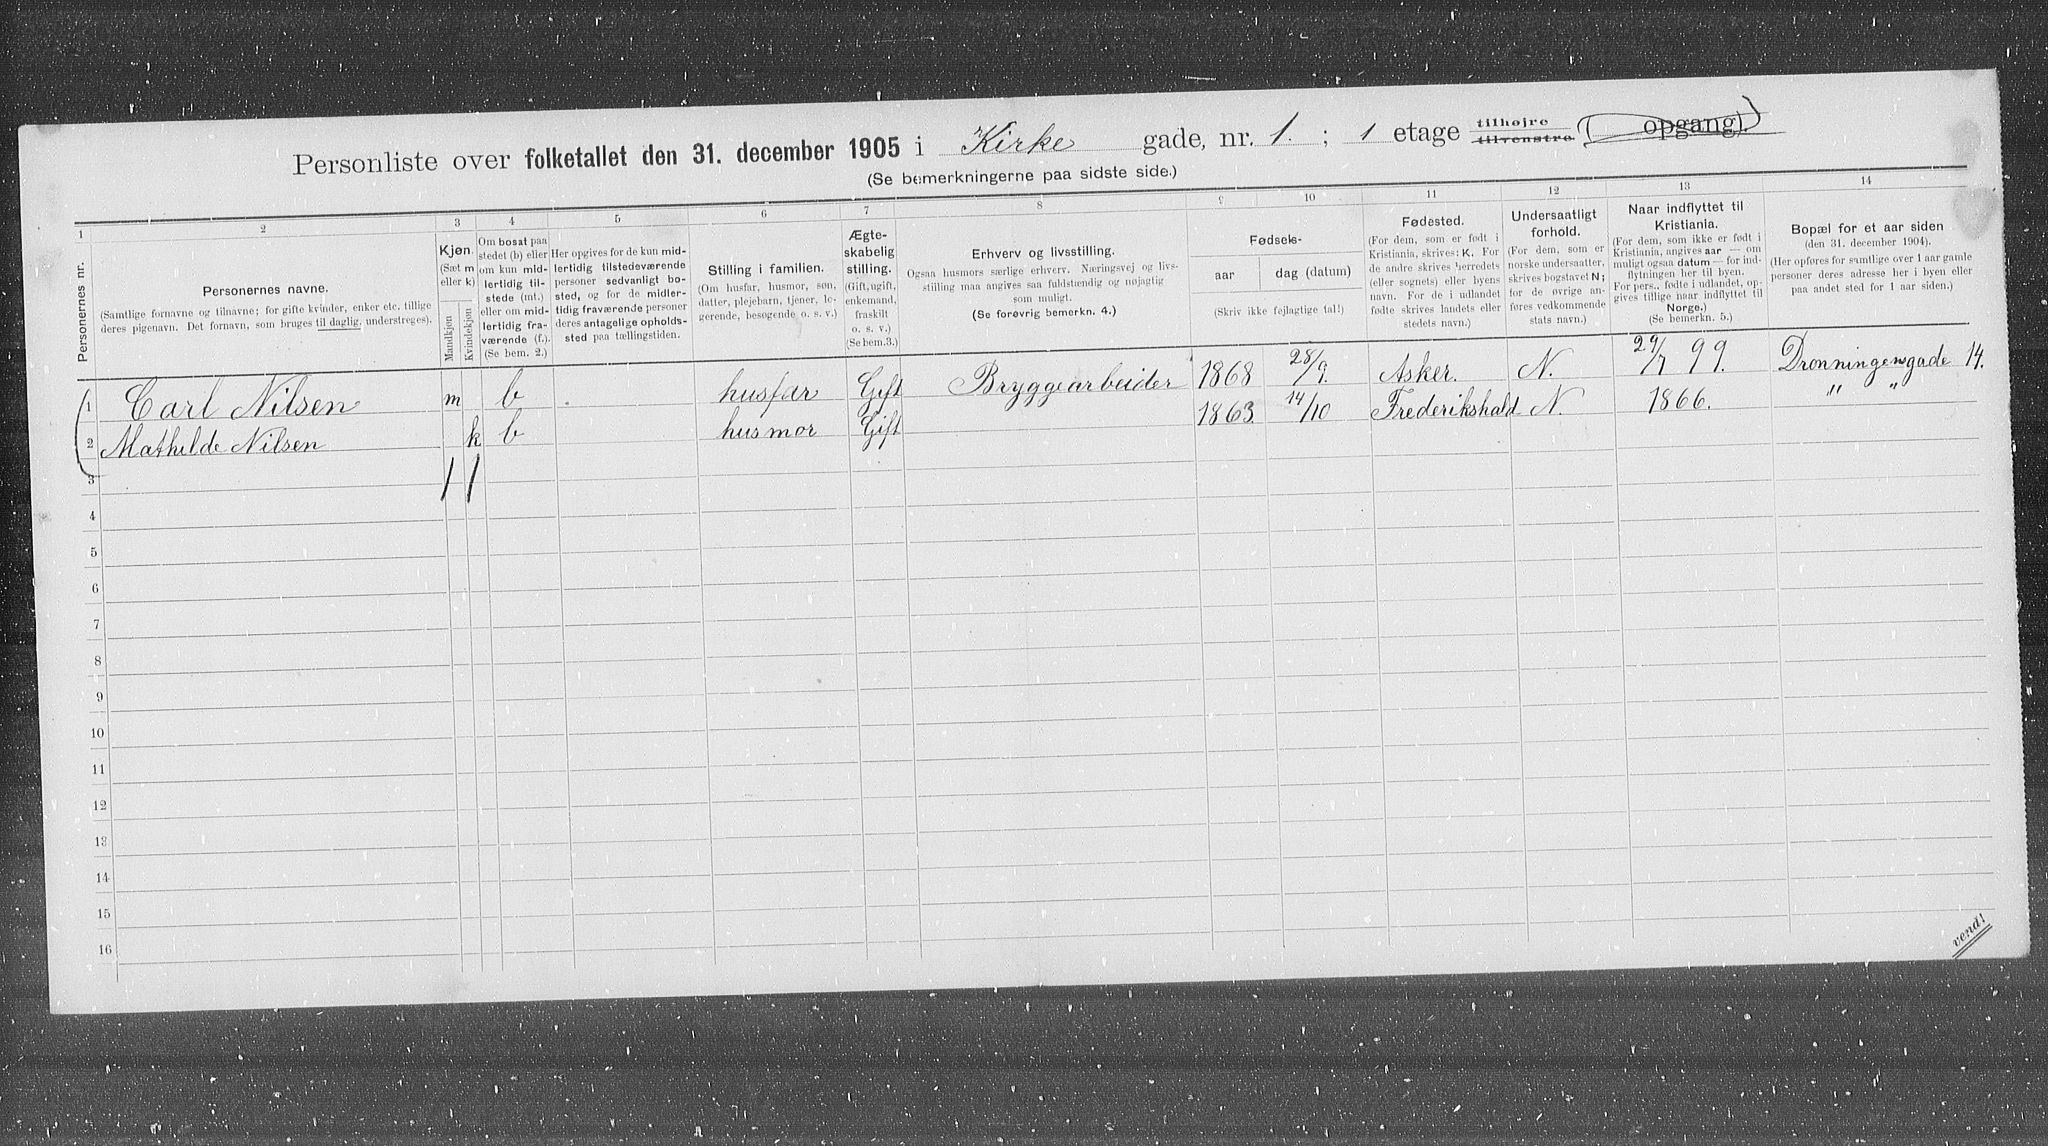 Personliste over folketallet den 31. december 1905 i Kirke gade, nr. 1. ; 1 etage tilhøjre tilvenstre ( opgang).
(Se bemerkningerne paa sidste side.)
1 2 3 4 5 6 7 8 9 10 11 12 13 14
Personernes nr.
Personernes navne.
(Samtlige fornavne og tilnavne; for gifte kvinder, enker etc. tillige
deres pigenavn. Det fornavn, som bruges til daglig, understreges).
Kjøn.
(Sæt m
eller k)
Mandkjøn
Kvindekjøn
Om bosat paa
stedet (b) eller
om kun mid-
lertidig til-
stede (mt.)
eller om mid-
lertidig fra-
værende (f.).
(Se bem. 2.)
Her opgives for de kun mid-
lertidig tilstedeværende
personer sedvanligt bo-
sted, og for de midler-
tidig fraværende personer
deres antagelige opholds-
sted paa tællingstiden.
Stilling i familien.
(Om husfar, husmor, søn,
datter, plejebarn, tjener, lo-
gerende, besøgende o. s. v.)
Ægte-
skabelig
stilling.
(Gift, ugift,
enkemand,
fraskilt
o. s. v.)
(Se bem.3.)
Erhverv og livsstilling.
Ogsaa husmors særlige erhverv. Næringsvej og livs-
stilling maa angives saa fuldstændig og nøjagtig
som muligt.
(Se forøvrig bemerkn. 4.)
Fødsels-
aar dag (datum)
(Skriv ikke fejlagtige tal!)
Fødested.
(For dem, som er født i
Kristiania, skrives: K. For
de andre skrives herredets
(eller sognets) eller byens
navn. For de i udlandet
fødte skrives landets eller
stedets navn.)
Undersaatligt
forhold.
(For dem, som er
norske undersaatter,
skrives bogstavet N;
for de øvrige an-
føres vedkommende
stats navn.)
Naar indflyttet til
Kristiania.
(For dem, som ikke er født i
Kristiania, angives aar — om
muligt ogsaa datum — for ind-
flytningen her til byen.
For pers., fødte i udlandet, op-
gives tillige naar indflyttet til
Norge.)
(Se bemerkn. 5.)
Bopæl for et aar siden
(den 31. december 1904).
(Her opføres for samtlige over 1 aar gamle
personer deres adresse her i byen eller
paa andet sted for 1 aar siden.)
1 Carl Nilsen m b husfar Gift Bryggearbeider 1868 28/9. Asker. N. 29/7 99. Dronningensgade 14.
2 Mathilde Nilsen k b husmor Gift 1863 14/10 Frederikshald N. 1866. " "
3 1 1
4
5
6
7
8
9
10
11
12
13
14
15
16
vend!